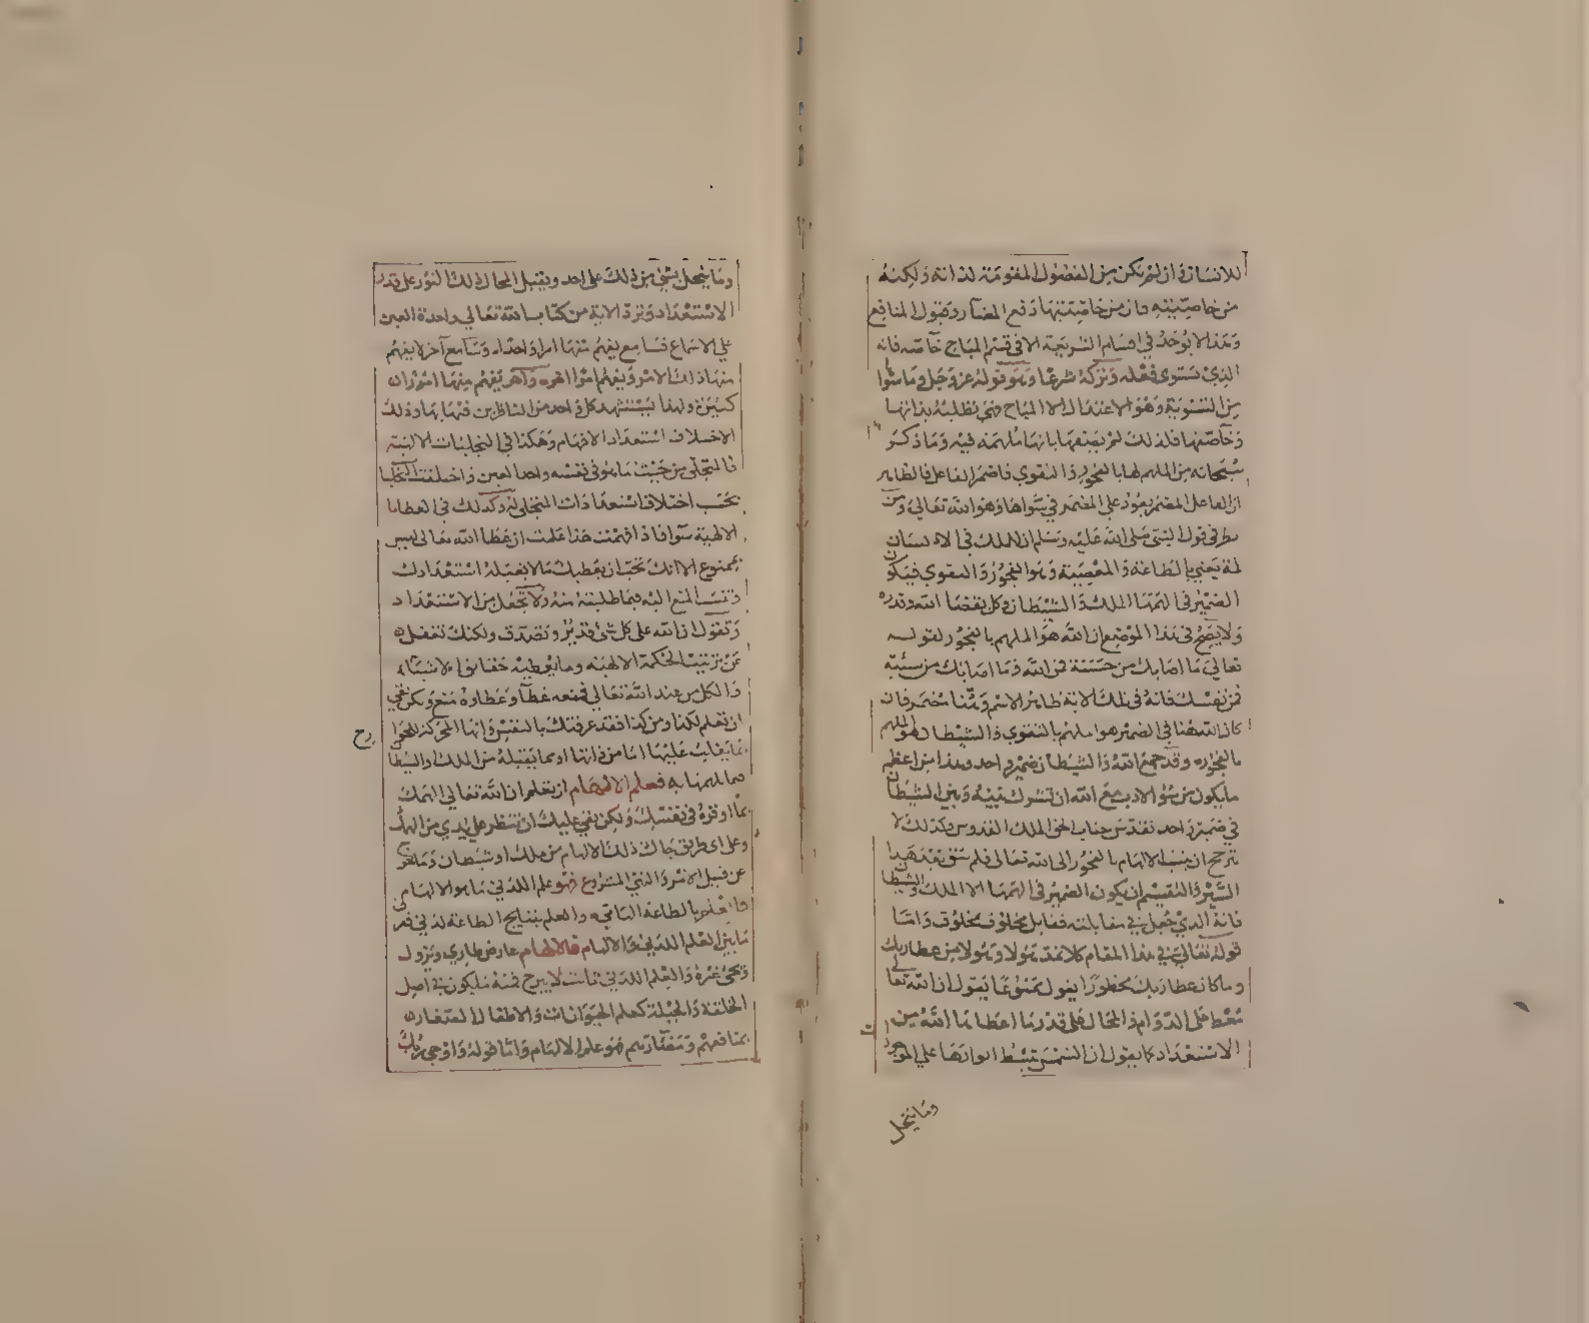 للانسان وان لم تكن من الفصول المقومة لذاته ولكنه
من خاصيته فان من خاصيتها دفع المضار وقبول المنافع
وهذا لا يوجد في اقسام الشريعة الا في قسم المباح خاصه فانه
الذي يستوي فعله وتركه شرعا وهو قوله عز وجل وما سواها
من التسوية وهو الاعتدال الا المباح فهي تطلبه بذاتها
وخاصتها فلذلك لم يصفها بانها ملهمة فيه وما ذكر
سبحانه من الملهم لها بالفجور والتقوي فاضمر الفاعل فالظاهر
ان الفاعل المضمر يعود علي المضمر في سواها وهو الله تعالي ومن
نظر في قول النبي صلى الله عليه وسلم ان للملك في الانسان
لمة يعني بالطاعة والمعصية وهو الفجور والتقوي فيكون
الضمير في الهمها الملك والشيطان وكل بقضا الله وقدره
ولا يصح في هذا الموضع ان الله هو الملهم بالفجور لقوله
تعالي ما اصابك من حسنة فمن الله وما اصابك من سيئة
فمن نفسك فانه في تلك الاية ظاهر الاسم وهنا مضمر فان
كان الله هنا في الضمير هو ملهم بالتقوي والشيطان هو الملهم
بالفجور وقد جمع الله والشيطان ضمير واحد وهذا من اعظم
ما يكون من سوء الادب مع الله ان تشرك بينه وبين الشيطان
في ضمير واحد تقدس جناب الحق الملك القدوس وكذلك لا
يترجح ان ينسب الالهام بالفجور الى الله تعالى فلم يبق بعد هذا
السبر والتقسيم ان يكون الضمير في الهمها الا الملك والشيطان
فانه الذي جعل في مقابلته فقابل مخلوق بمخلوق واما
قوله تعالي في هذا المقام كلا نمد هولا وهولا من عطا ربك
وما كان عطا ربك محظورا يقول ممنوعا يقول ان الله تعالى
معط على الدوام والمحال على قدر ما اعطاها الله من
الاستعداد كما يقول ان الشمس تبسط انوارها علي الموجودات
وما يبخل
وما يبخل بشي من ذلك على احد ويقبل المحال ذلك النور على قدر
الاستعداد وترد الاية من كتاب الله تعالي واحدة العين
علي الاسماع فسامع يفهم منها امرا واحدا وسامع آخر لا يفهم
منها ذلك الامر ويفهم امرا اخر وآخر يفهم منها امورا
كثيرة ولهذا يستشهد كل واحد من الناظرين فيها بها وذلك
لاختلاف استعداد الافهام وهكذا في التجليات الالهية
فالمتجلي من حيث ما هو في نفسه واحد العين واختلفت التجليات
بحسب اختلاف استعدادات المتجلى له وكذلك في العطايا
الالهية سوا فاذا فهمت هذا علمت ان عطا الله تعالى ليس
بممنوع الا انك تحب ان يعطيك ما لا يقبله استعدادك
وتنسب المنع اليه فيما طلبته منه ولا تجعل من الاستعداد
وتقول ان الله على كل شي قدير وتصدق ولكنك تغفل
عن ترتيب الحكمة الالهية وما يعطيه حقائق الاشياء
والكل من عند الله تعالى فمنعه عطا وعطاوه منع ولكن بقي
ان تعلم لكذا ومن كذا فقد عرفتك بالنفس وانها المحركة للجوارح
بما يغلب عليها اما من ذاتها او مما يقبله من الملك والشيطان
فيما الهمها به فعلم الالهام ان تعلم ان الله تعالي الهمك
بما اوقره في نفسك ولكن بقي عليك ان تنظر على يدي من الهمك
وعلى اي طريق جاك ذلك الالهام من ملك او شيطان وما خرج
عن قبيل الامر والنهي المشروع فهو علم اللدني ما هو الالهام
فانه علم بالطاعة والعلم بنتايج الطاعة لدني ففرق
ما بين العلم اللدني والالهام فالالهام عارض طاري ويزول
ويجي غيره والعلم اللدني ثابت لا يبرح فمنه ما يكون في اصل
الخلقة والجبلة كعلم الحيوانات والاطفال الصغار
بمنافعهم ومضارهم فهو علم لا الهام واما قوله واوحي ربك